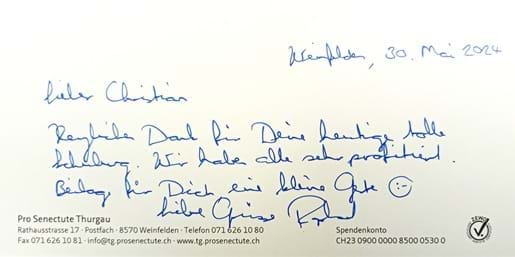 Weinfelden, 30. Mai 2024
Lieber Christian
Herzlichen Dank für Deine heutige tolle
Schulung. Wir haben alle sehr profitiert.
Beilag. für Dich eine kleine Geste :-)
Liebe Grüsse
Pro Senectute Thurgau
Rathausstrasse 17 · Postfach · 8570 Weinfelden · Telefon 071 626 10 80
Fax 071 626 10 81 · info@tg.prosenectute.ch · www.tg.prosenectute.ch
Spendenkonto
CH23 0900 0000 8500 0530 0
ZEWO